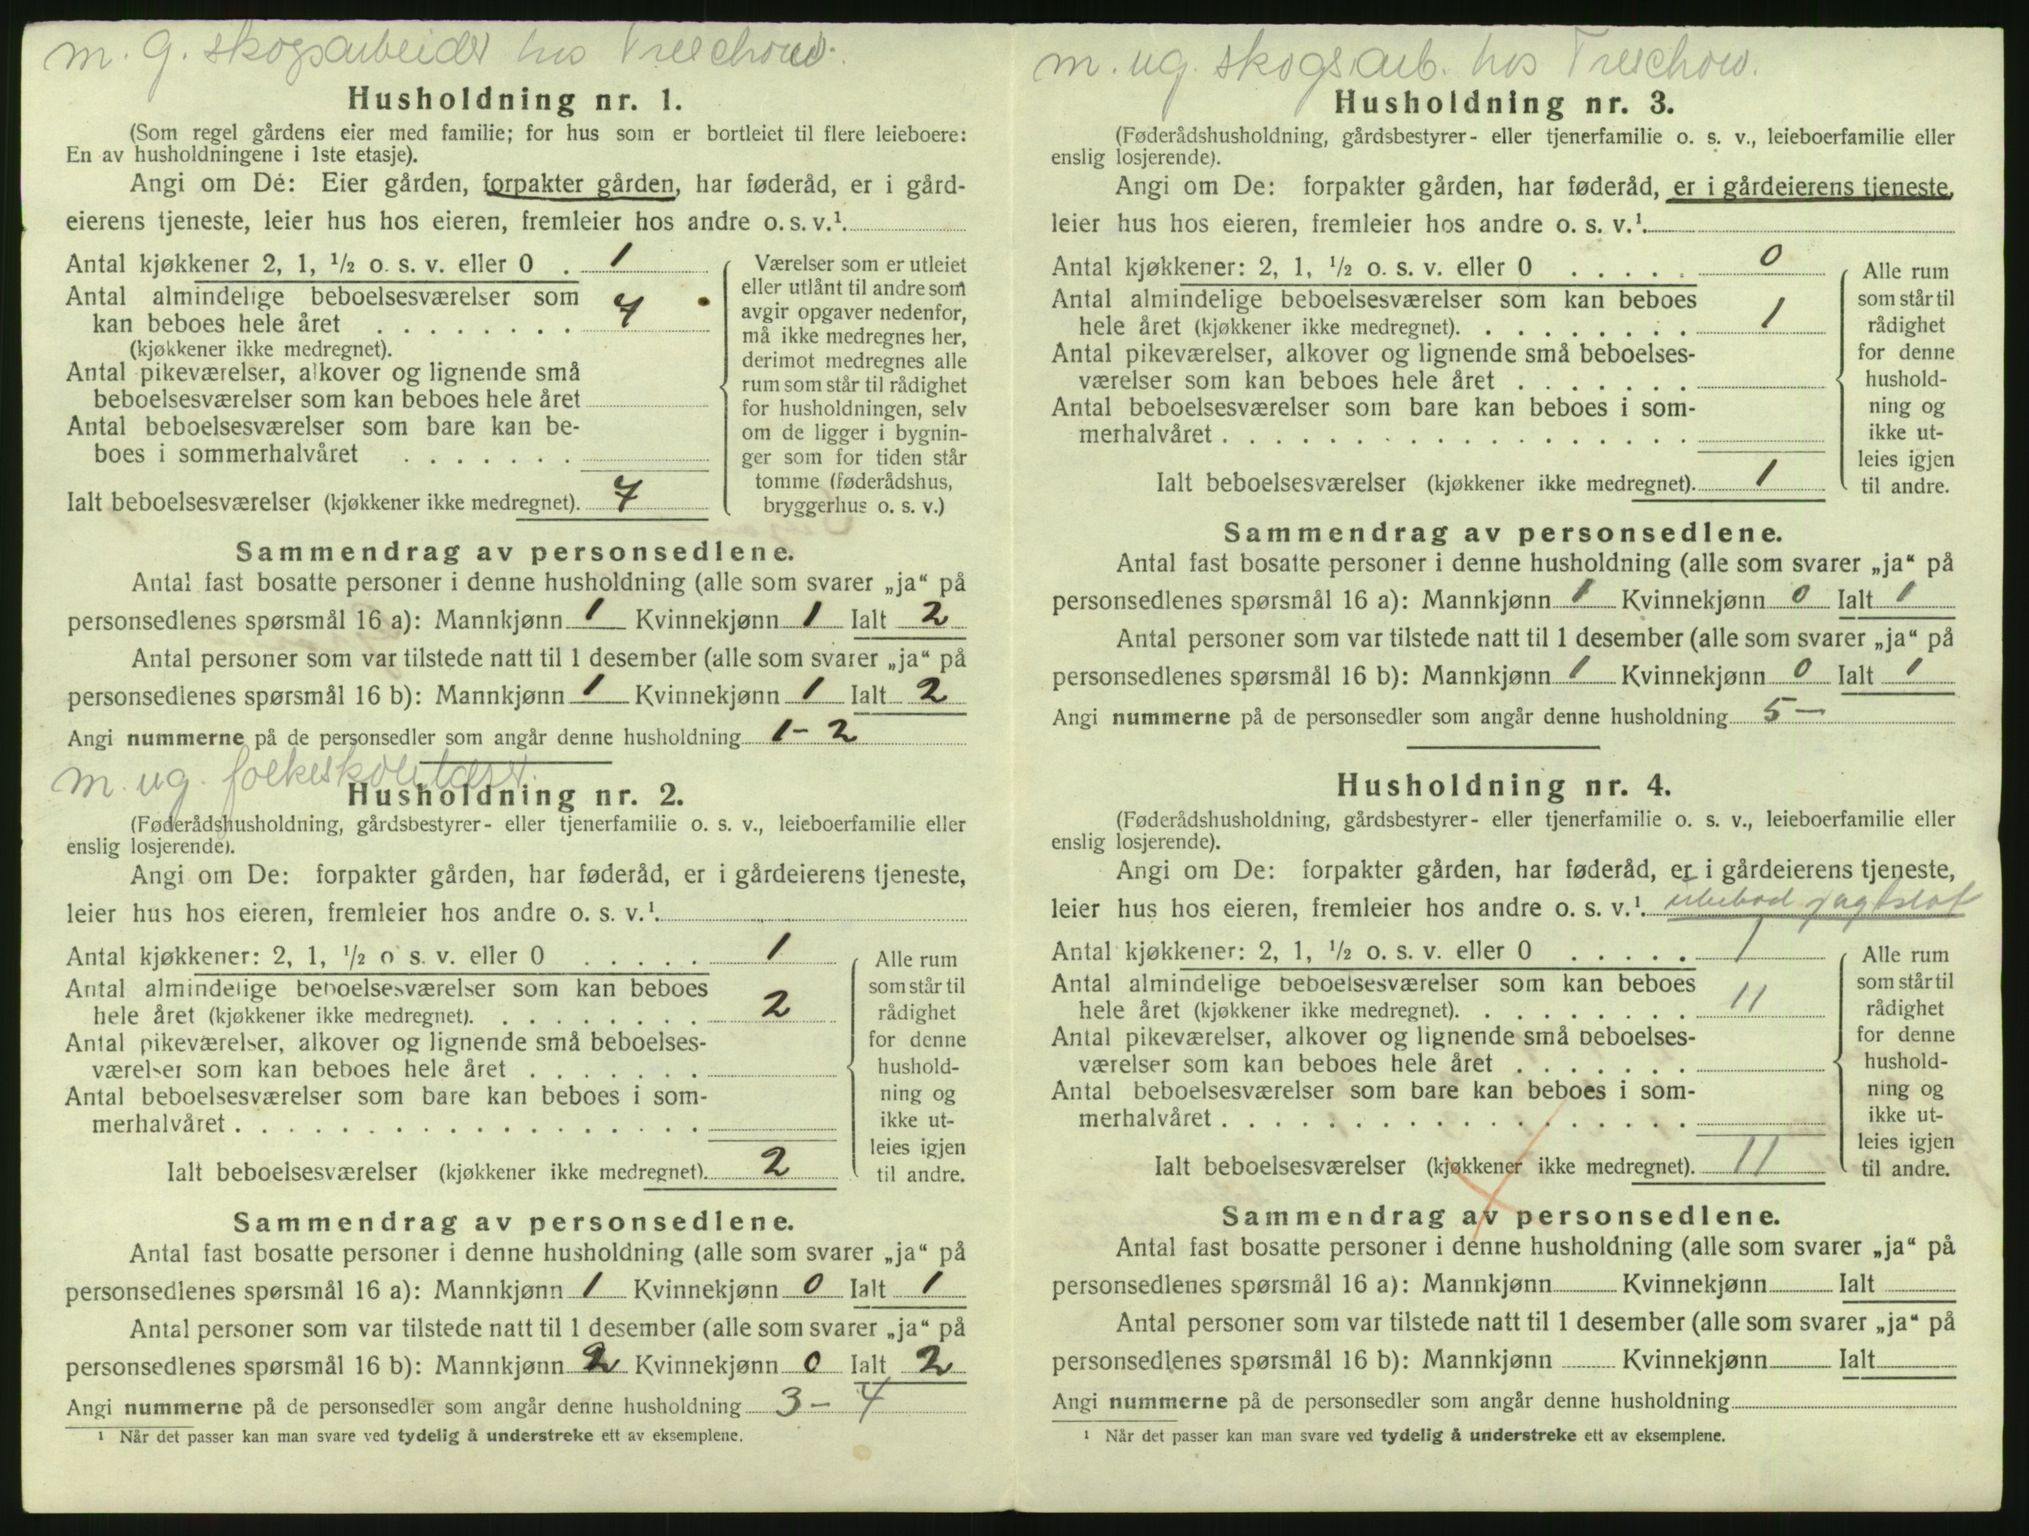 m. g. skogsarbeider hos Treschow.
Husholdning nr. 1.
(Som regel gårdens eier med familie; for hus som er bortleiet til flere leieboere:
En av husholdningene i 1ste etasje).
Angi om Dé: Eier gården, forpakter gården, har føderåd, er i gård-
eierens tjeneste, leier hus hos eieren, fremleier hos andre o. s. v.¹
Antal kjøkkener 2, 1, ½ o. s. v. eller 0 . 1
Antal almindelige beboelsesværelser som
kan beboes hele året . . . . . . . . 7
(kjøkkener ikke medregnet).
Antal pikeværelser, alkover og lignende små
beboelsesværelser som kan beboes hele året
Antal beboelsesværelser som bare kan be-
boes i sommerhalvåret . . . . . . .
Ialt beboelsesværelser (kjøkkener ikke medregnet). 7
Værelser som er utleiet
eller utlånt til andre som
avgir opgaver nedenfor,
må ikke medregnes her,
derimot medregnes alle
rum som står til rådighet
for husholdningen, selv
om de ligger i bygnin-
ger som for tiden står
tomme (føderådshus,
bryggerhus o. s. v.)
Sammendrag av personsedlene.
Antal fast bosatte personer i denne husholdning (alle som svarer „ja“ på
personsedlenes spørsmål 16 a): Mannkjønn 1 Kvinnekjønn 1 Ialt 2
Antal personer som var tilstede natt til 1 desember (alle som svarer „ja“ på
personsedlenes spørsmål 16 b): Mannkjønn 1 Kvinnekjønn 1 Ialt 2
Angi nummerne på de personsedler som angår denne husholdning 1 - 2
m. ug. folkeskolelærer.
Husholdning nr. 2.
(Føderådshusholdning, gårdsbestyrer- eller tjenerfamilie o. s. v., leieboerfamilie eller
enslig losjerende).
Angi om De: forpakter gården, har føderåd, er i gårdeierens tjeneste,
leier hus hos eieren, fremleier hos andre o. s. v.¹
Antal kjøkkener: 2, 1, ½ o. s. v. eller 0 . . . . . 1
Antal almindelige beboelsesværelser som kan beboes
hele året (kjøkkener ikke medregnet). . . . . . . . . 2
Antal pikeværelser, alkover og lignende små beboelses-
værelser som kan beboes hele året . . . . . . .
Antal beboelsesværelser som bare kan beboes i som-
merhalvåret . . . . . . . . . . . . . . . . .
Ialt beboelsesværelser (kjøkkener ikke medregnet). 2
Alle rum
som står til
rådighet
for denne
hushold-
ning og
ikke ut-
leies igjen
til andre.
Sammendrag av personsedlene.
Antal fast bosatte personer i denne husholdning (alle som svarer „ja“ på
personsedlenes spørsmål 16 a): Mannkjønn 1 Kvinnekjønn 0 Ialt 1
Antal personer som var tilstede natt til 1 desember (alle som svarer „ja“ på
personsedlenes spørsmål 16 b): Mannkjønn 2 Kvinnekjønn 0 Ialt 2
Angi nummerne på de personsedler som angår denne husholdning 3 - 4
¹ Når det passer kan man svare ved tydelig å understreke ett av eksemplene.
m. ug. skogsarb. hos Treschow.
Husholdning nr. 3.
(Føderådshusholdning, gårdsbestyrer- eller tjenerfamilie o. s. v., leieboerfamilie eller
enslig losjerende).
Angi om De: forpakter gården, har føderåd, er i gårdeierens tjeneste,
leier hus hos eieren, fremleier hos andre o. s. v.¹
Antal kjøkkener: 2, 1, ½ o. s. v. eller 0 . . . . . 0
Antal almindelige beboelsesværelser som kan beboes
hele året (kjøkkener ikke medregnet). . . . . . . . . 1
Antal pikeværelser, alkover og lignende små beboelses-
værelser som kan beboes hele året . . . . . . .
Antal beboelsesværelser som bare kan beboes i som-
merhalvåret . . . . . . . . . . . . . . . . .
Ialt beboelsesværelser (kjøkkener ikke medregnet). 1
Alle rum
som står til
rådighet
for denne
hushold-
ning og
ikke ut-
leies igjen
til andre.
Sammendrag av personsedlene.
Antal fast bosatte personer i denne husholdning (alle som svarer „ja“ på
personsedlenes spørsmål 16 a): Mannkjønn 1 Kvinnekjønn 0 Ialt 1
Antal personer som var tilstede natt til 1 desember (alle som svarer „ja“ på
personsedlenes spørsmål 16 b): Mannkjønn 1 Kvinnekjønn 0 Ialt 1
Angi nummerne på de personsedler som angår denne husholdning 5 -
Husholdning nr. 4.
(Føderådshusholdning, gårdsbestyrer- eller tjenerfamilie o. s. v., leieboerfamilie eller
enslig losjerende).
Angi om De: forpakter gården, har føderåd, er i gårdeierens tjeneste,
leier hus hos eieren, fremleier hos andre o. s. v.¹ ubebod jagtslot
Antal kjøkkener: 2, 1, ½ o. s. v. eller 0 . . . . . 1
Antal almindelige beboelsesværelser som kan beboes
hele året (kjøkkener ikke medregnet). . . . . . . . . 11
Antal pikeværelser, alkover og lignende små beboelses-
værelser som kan beboes hele året . . . . . . .
Antal beboelsesværelser som bare kan beboes i som-
merhalvåret . . . . . . . . . . . . . . . . .
Ialt beboelsesværelser (kjøkkener ikke medregnet). 11
Alle rum
som står til
rådighet
for denne
hushold-
ning og
ikke ut-
leies igjen
til andre.
Sammendrag av personsedlene.
Antal fast bosatte personer i denne husholdning (alle som svarer „ja“ på
personsedlenes spørsmål 16 a): Mannkjønn Kvinnekjønn Ialt
Antal personer som var tilstede natt til 1 desember (alle som svarer „ja“ på
personsedlenes spørsmål 16 b): Mannkjønn Kvinnekjønn Ialt
Angi nummerne på de personsedler som angår denne husholdning
¹ Når det passer kan man svare ved tydelig å understreke ett av eksemplene.